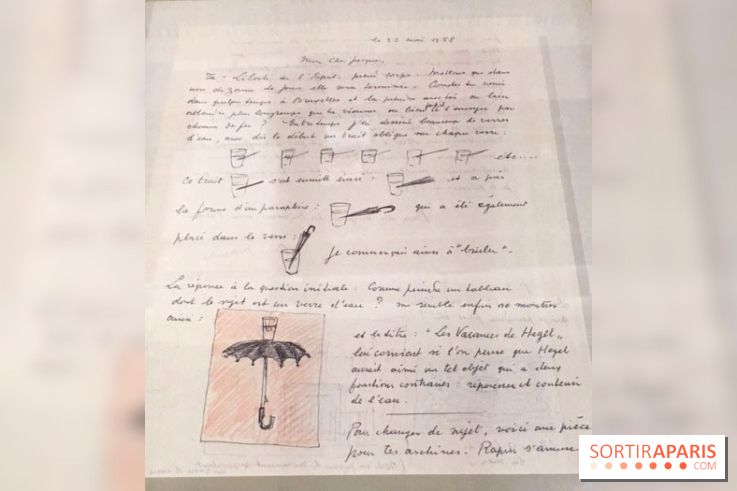 le 22 mai 1958
Mon cher Jacques,
Ta "Liberté de l'Esprit" prend corps. J'estime que dans
une dizaine de jours elle sera terminée.
dans quelque temps à Bruxelles et la prendre avec toi ou bien
plus longtemps que tu viennes ou bien l'envoyer par
chemin de fer ? Entretemps j'ai dessiné beaucoup de verres
d'eau, avec dès le début un trait oblique sur chaque verre :
etc....
Ce trait s'est ensuite évasé : et a pris
la forme d'un parapluie : qui a été également
placé dans le verre :
Je commençai ainsi à "brûler".
La réponse à la question initiale : Comme peindre un tableau
dont le sujet est un verre d'eau ? me semble enfin se montrer
ainsi :
et le titre : "Les Vacances de Hegel"
lui convient si l'on pense que Hegel
aurait aimé un tel objet qui a deux
fonctions contraires : repousser et contenir
de l'eau.
Pour changer de sujet, voici une pièce
pour tes archines. Rapin s'amuse
SORTIRAPARIS
.COM